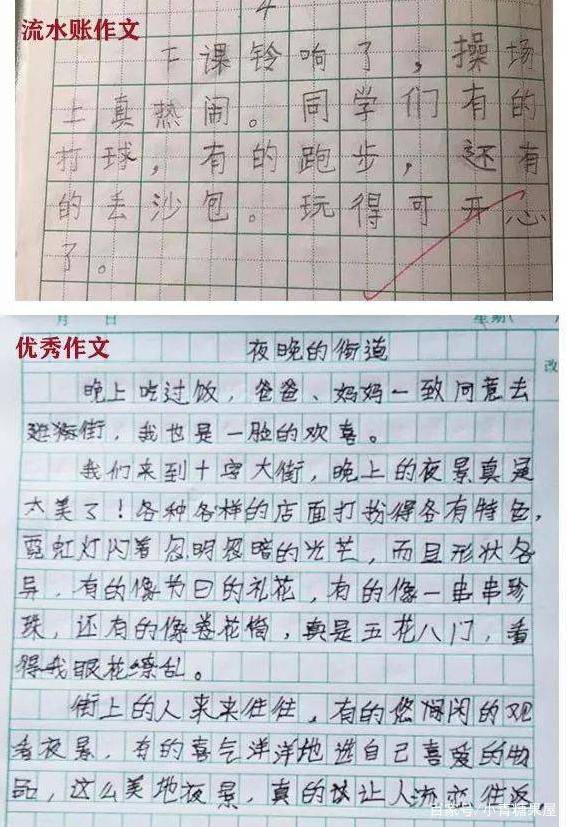 流水账作文
下课铃响了，操场
上真热闹。同学们有的
打球，有的跑步，还有
的丢沙包。玩得可开心
了。
月 日 星期
优秀作文
夜晚的街道
改
晚上吃过饭，爸爸、妈妈一致同意去
逛街，我也是一脸的欢喜。
我们来到十字大街，晚上的夜景真是
太美了！各种各样的店面打扮得各有特色，
霓虹灯闪着忽明忽暗的光芒，而且形状各
异，有的像节日的礼花，有的像一串串珍
珠，还有的像卷花筒，真是五花八门，看
得我眼花缭乱。
街上的人来来往往，有的悠闲的观
看夜景，有的喜气洋洋地选自己喜爱的物
品，这么美地夜景，真的该让人流恋往返
百家号/小青糖果屋